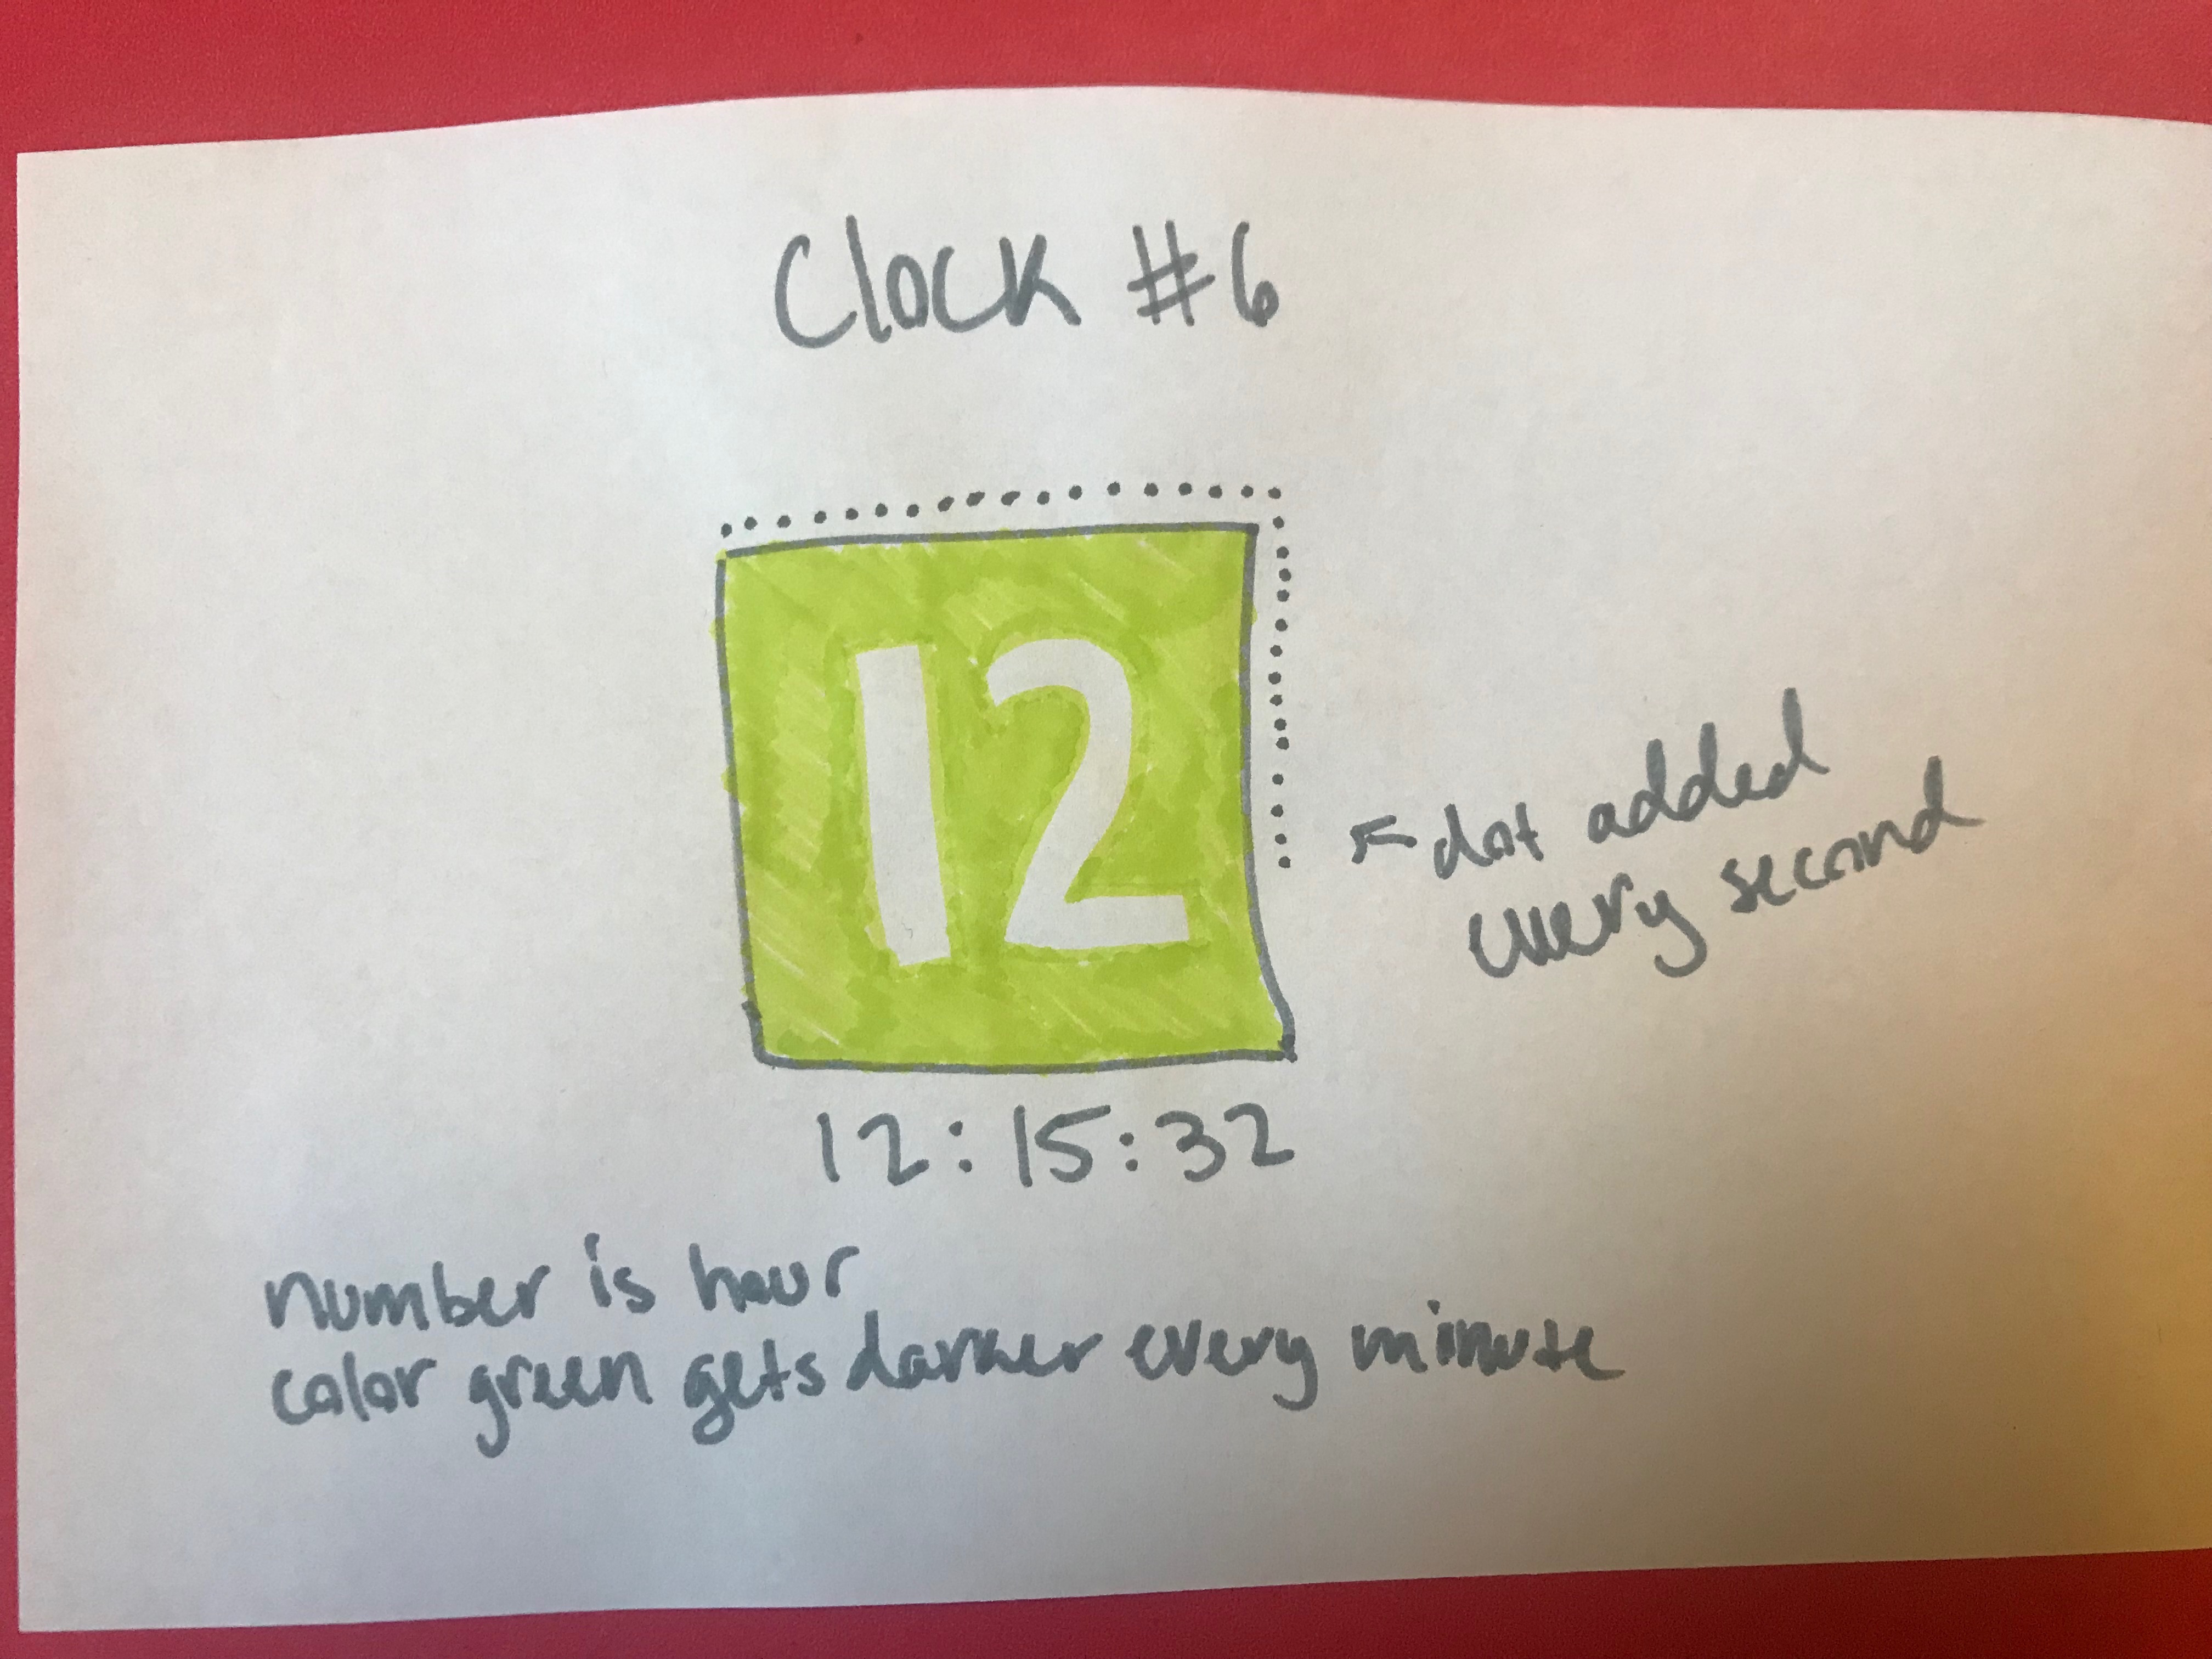 Clock #6
12
dot added
every second
12:15:32
number is hour
color green gets darker every minute